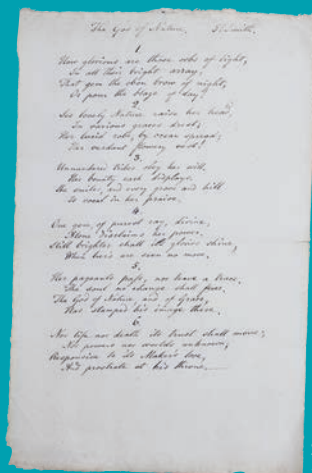 The God of Nature. H. Smith.
1.
How glorious are those orbs of light,
In all their bright array,
That gem the ebon brow of night,
Or pour the blaze of day!
2.
See lovely Nature raise her head,
In various graces drest;
Her lucid robe, by ocean spread;
Her verdant flowery vest!
3.
Unnumbered tribes obey her will,
Her bounty each displays;
She smiles, and every grove and hill
Is vocal in her praise.
4.
One gem, of purest ray, divine,
Alone disclaims her power;
Still brighter shall its glories shine,
When hers are seen no more.
5.
Her pageants pass, nor leave a trace;
The soul no change shall fear;
The God of Nature and of Grace,
Has stamped his image there.
6.
Nor life nor death its trust shall move;
Nor powers nor worlds unknown;
Responsive to its Maker's love,
And prostrate at his throne.